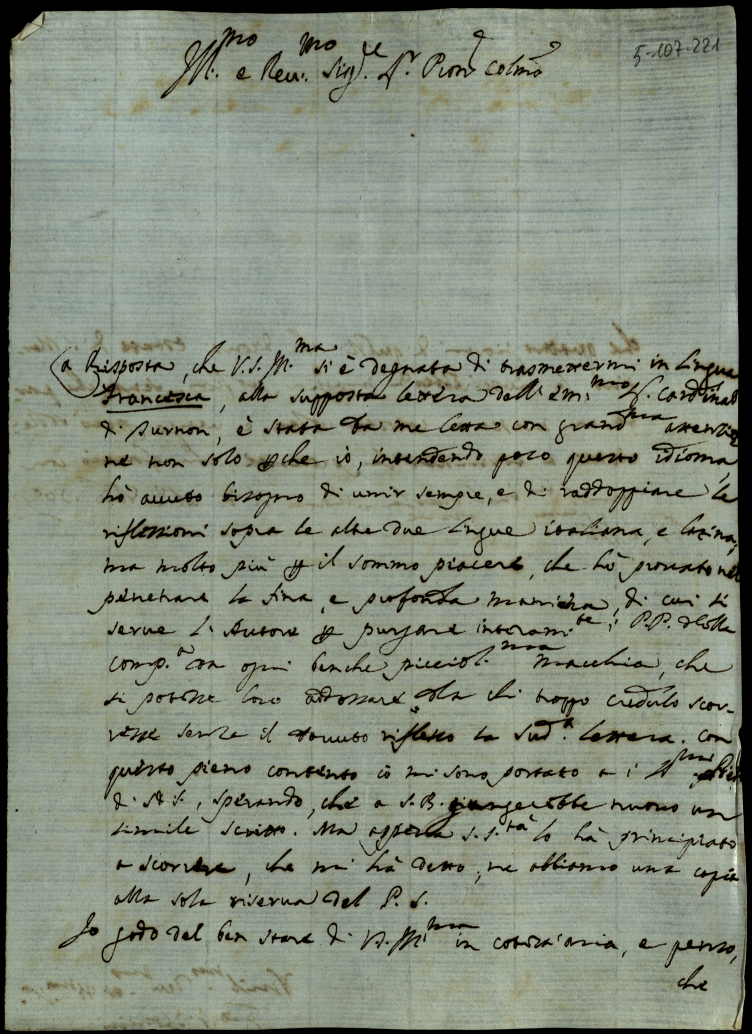 5-107-221
Ill.mo e Rev.mo Sig.re Sr. Pron. Colmo
La Risposta, che V.S. Ill.ma si è degnata di trasmettermi in lingua
Francesca, alla supposta lettera dell'Em.mo Sr. Cardinal
di Turnon, è stata da me letta con grand.ma attenzio
ne non solo perche io, intendendo poco questo idioma,
hò avuto bisogno di unir sempre, e di raddoppiare le
riflessioni sopra le altre due lingue italiana, e latina,
ma molto più per il sommo piacere, che hò provato nel
penetrare la fina, e profonda maniera, di cui si
serve l'Autore per purgare interam.te i P.P. della
Comp.a da ogni benche picciol.ma macchia, che
si potesse loro addossare da chi troppo credulo scor-
resse senza il dovuto riflesso la Sud.a lettera. Con
questo pieno contento io mi sono portato a i SSmi Piedi
di S.S., sperando, che a S.B. giungerebbe nuovo un
simile scritto. Ma appena S.S.tà lo hà principiato
a scorrere, che mi hà detto, ne abbiamo una copia
alla sola riserva del P. S.
Io godo del ben stare di V.S. Ill.ma in cotest'aria, e penso,
che